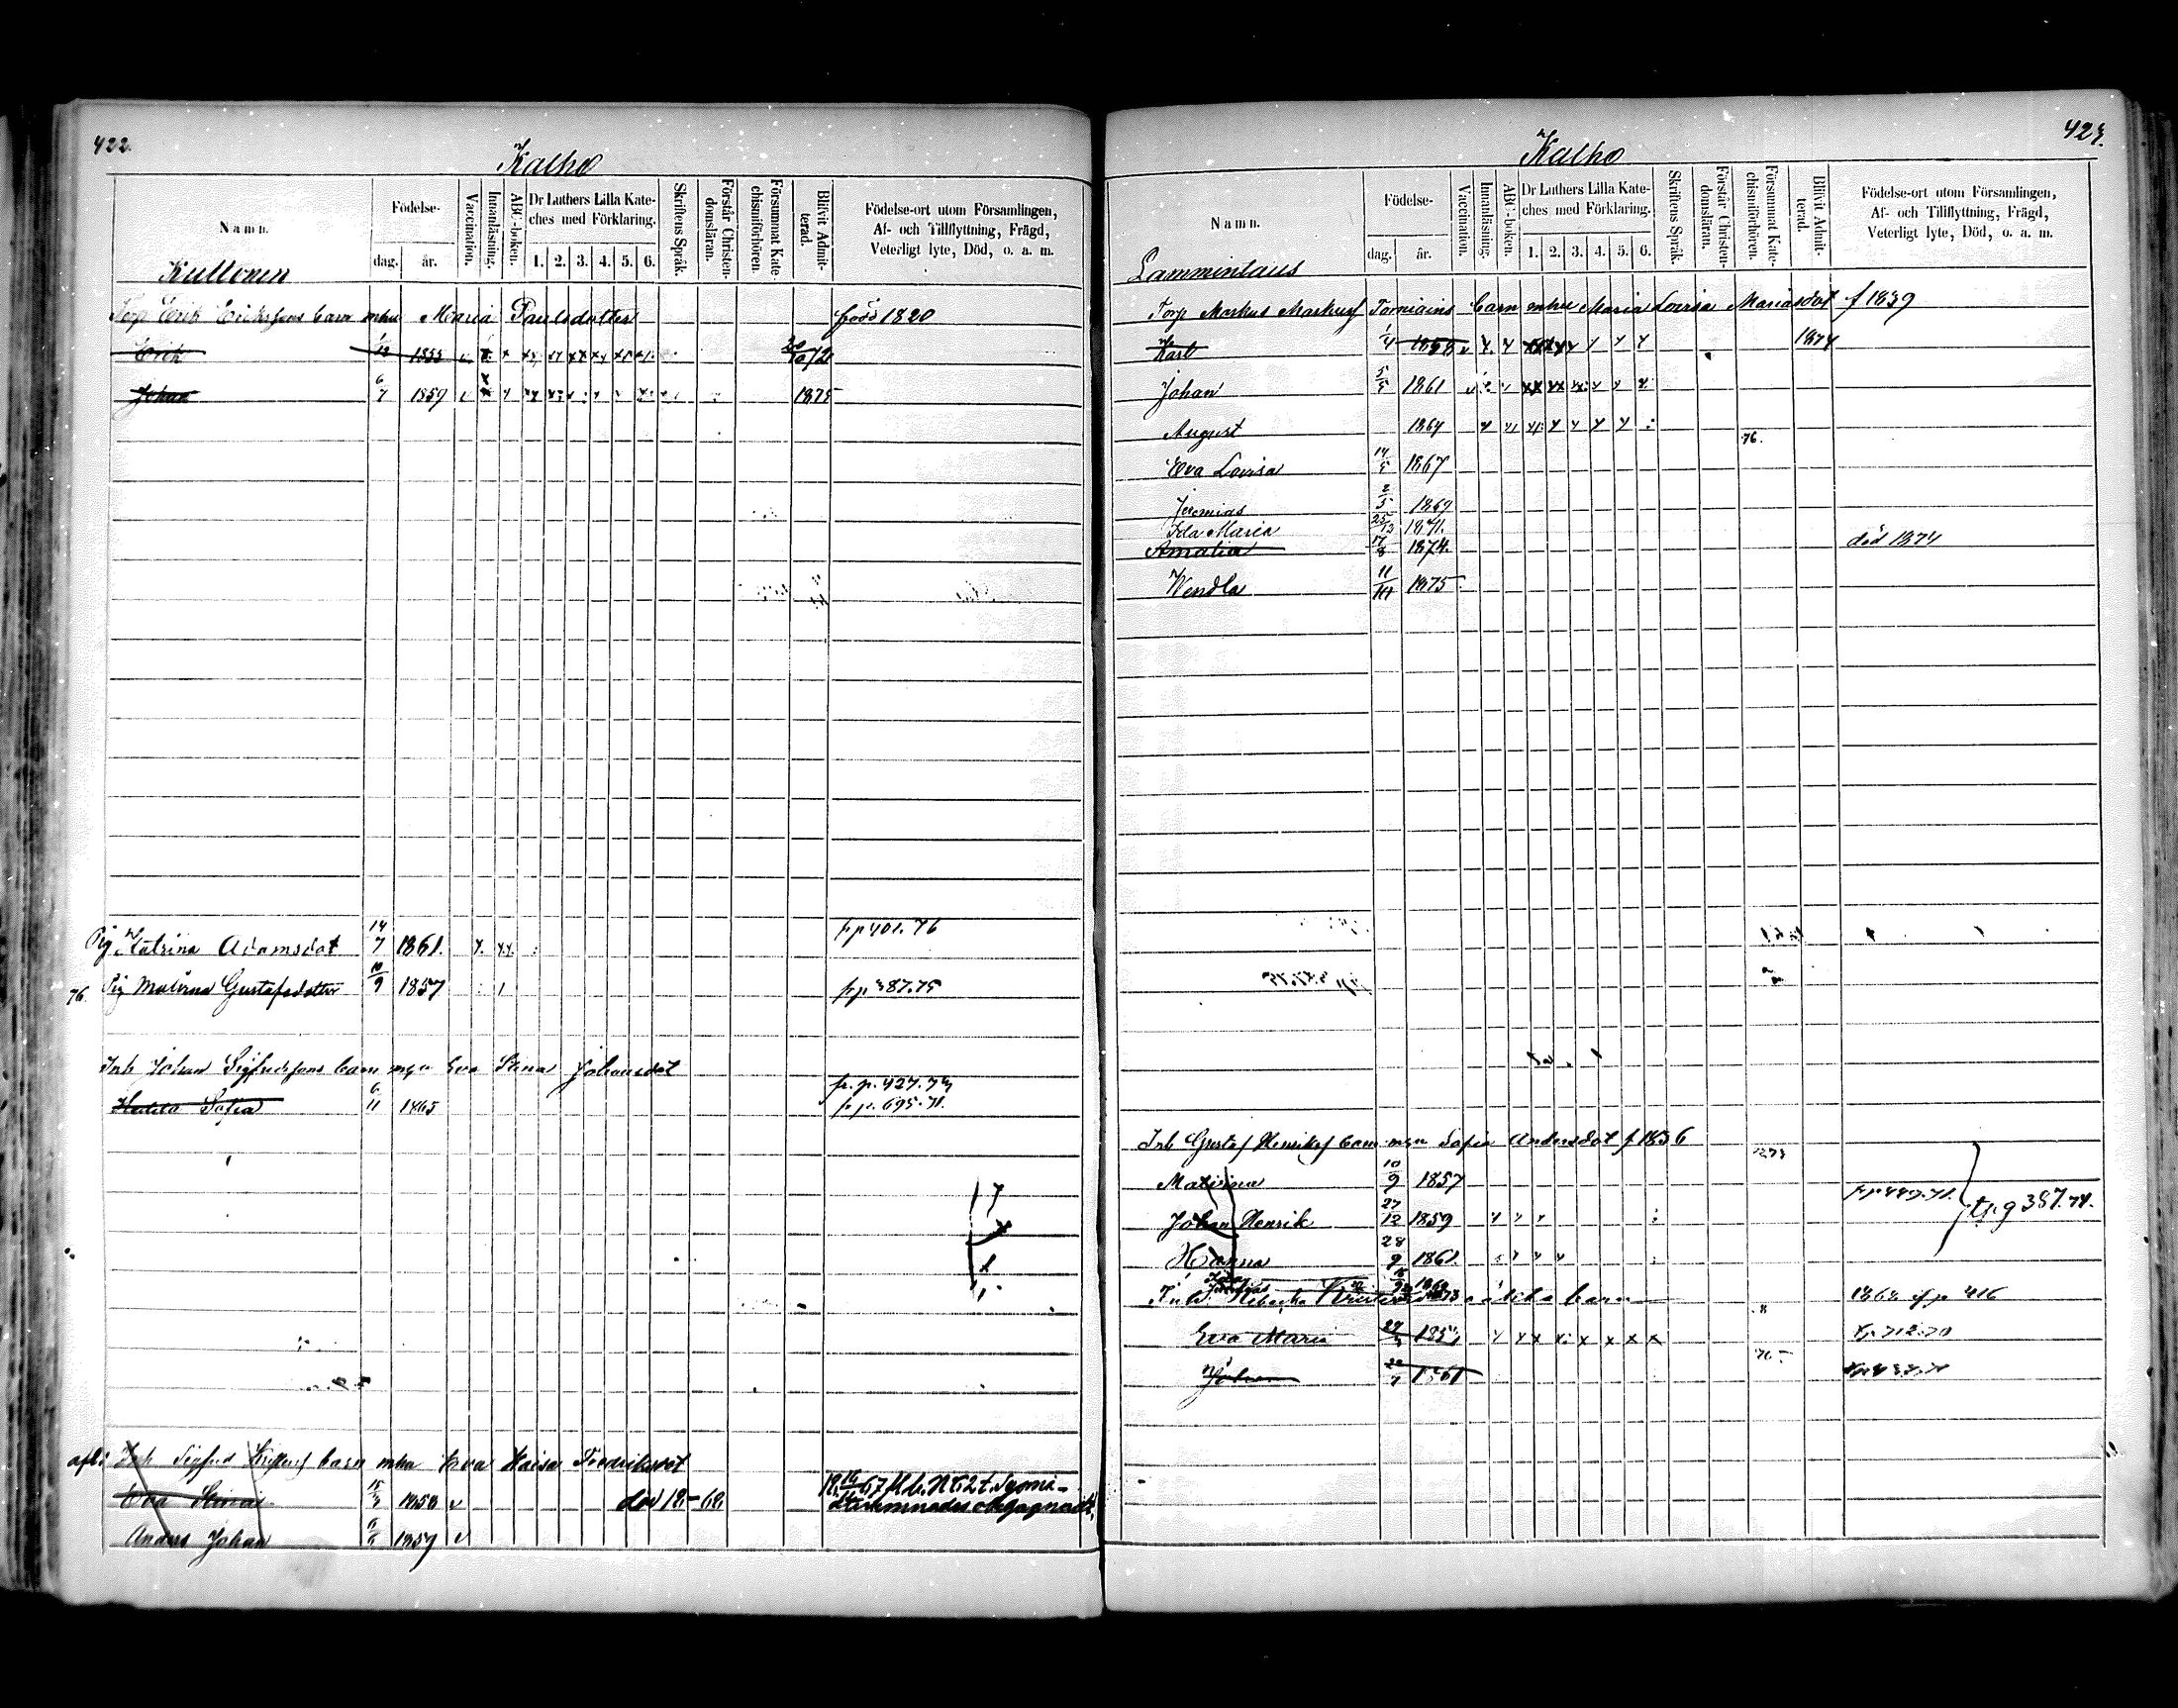 422.
Kalho
Namn.
Födelse-
dag.
år.
Vaccination.
Innanläsning.
ABC-boken.
Dr Luthers Lilla Kate-
ches med Förklaring.
1. 2. 3. 4. 5. 6.
Skriftens Språk.
Förstår Christen-
domsläran.
Försummat Kate-
chismiförhören.
Blifvit Admit-
terad.
Födelse-ort utom Församlingen,
Af- och Tillflyttning, Frägd,
Veterligt lyte, Död, o. a. m.
Kultonen
Torp Erik Erikssons barn mhu Maria Paulsdotter född 1820
Erik 1853
Johan 6/7 1859 1875
Pig Katrina Adamsdot 14/7 1861. fr p 401. 76
76. Pig Malvina Gustafsdotter 10/9 1857 fr p. 387. 75
Inh Johan Sigfredssons barn mgu Eva Stina Johansdot fr. p. 427. 73
Sofia 6/11 1865 fr p. 695. 71.
Inh Sigfred barn mhu Eva Kaisa Fredriksdot
Eva Stina 1858 död 18 - 68
Anders Johan 6/6 1859
423.
Kalho
Namn.
Födelse-
dag.
år.
Vaccination.
Innanläsning.
ABC-boken.
Dr Luthers Lilla Kate-
ches med Förklaring.
1. 2. 3. 4. 5. 6.
Skriftens Språk.
Förstår Christen-
domsläran.
Försummat Kate-
chismiförhören.
Blifvit Admit-
terad.
Födelse-ort utom Församlingen,
Af- och Tillflyttning, Frägd,
Veterligt lyte, Död, o. a. m.
Lammintaus
Torp Markus Markuss Torniains barn mhu Maria Lovisa Mariasdot f 1839
Karl 1/4 1858 1874
Johan 5/5 1861
August 1864 76.
Eva Lovisa 14/5 1867
Jeremias 2/5 1869
Ida Maria 25/12 1871.
Amalia 17/8 1874. död 1874
Wendla 11/10 1875
Inh Gustaf Henrikss barn mgu Sofia Andersdot f 1836
Malvina 10/9 1857
Johan Henrik 27/12 1859
Hanna 28/9 1861.
Inh. oäkta barn 1868 if p 416
Eva Maria
Johan 1861